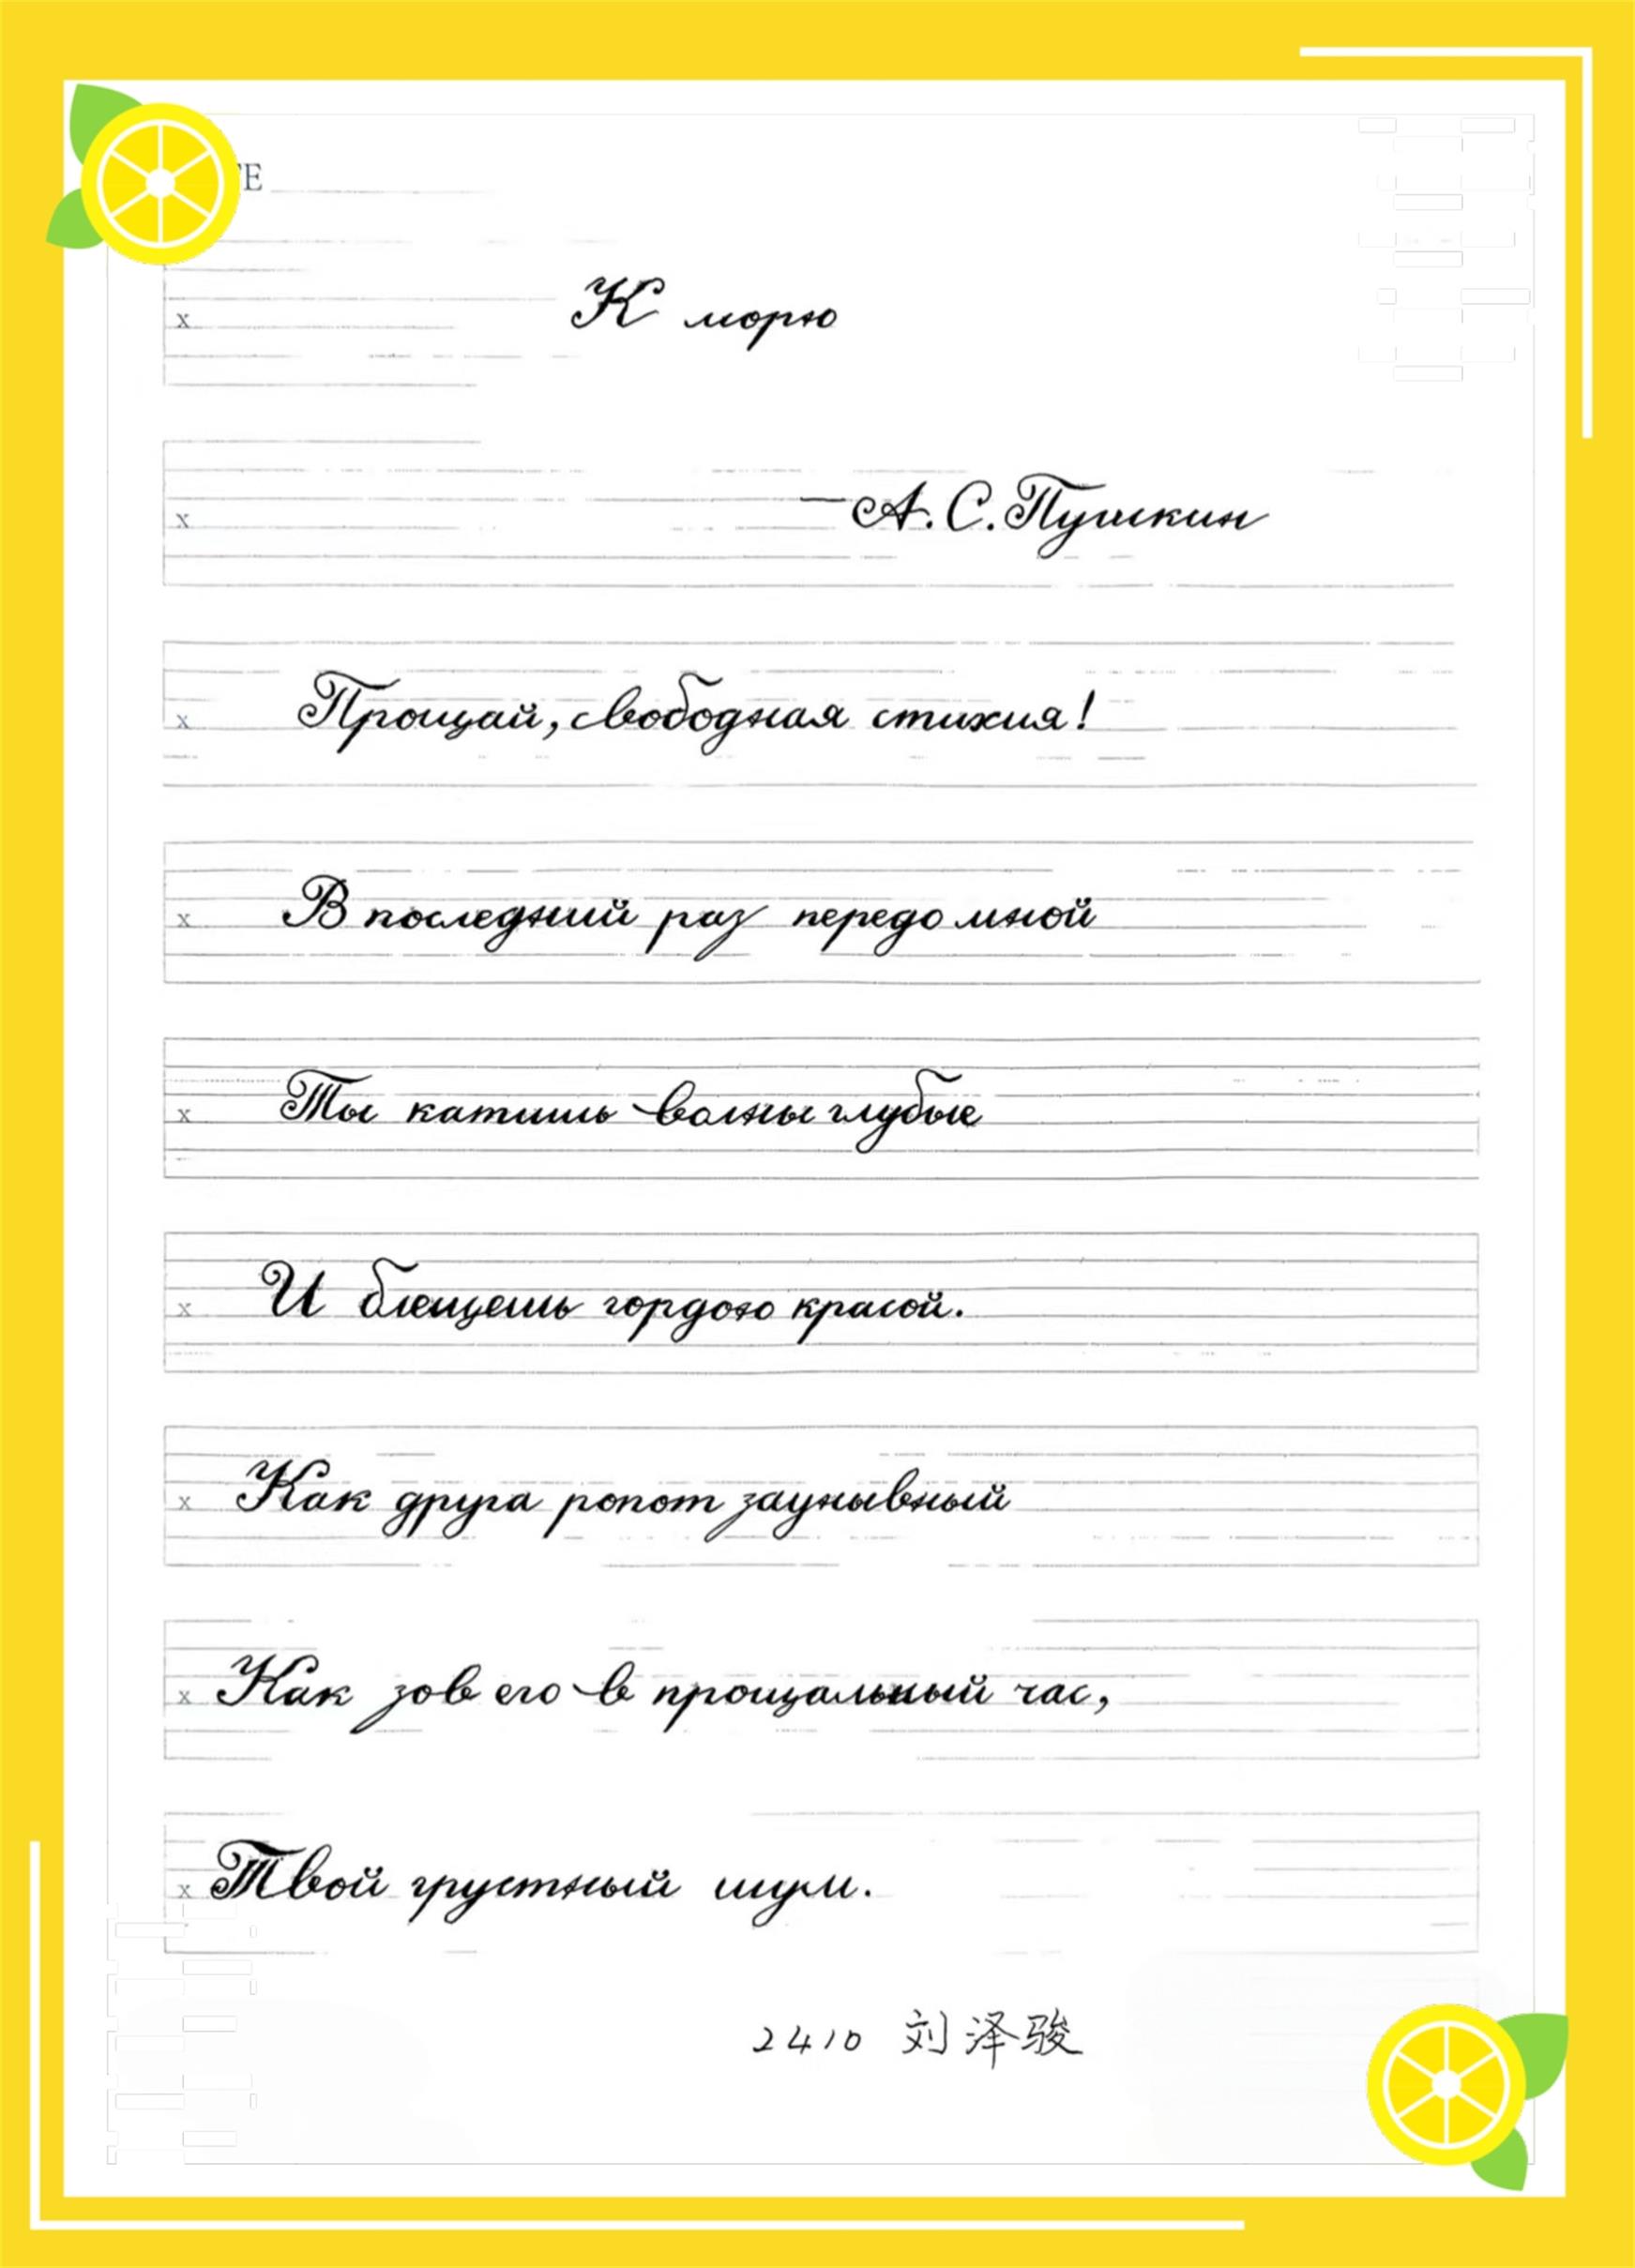 TE
К морю
—А. С. Пушкин
x Прощай, свободная стихия!
x В последний раз передо мной
x Ты катишь волны глубые
x И блещешь гордою красой.
x Как друга ропот заунывный
x Как зов его в прощальный час,
x Твой грустный шум.
2410 刘泽骏